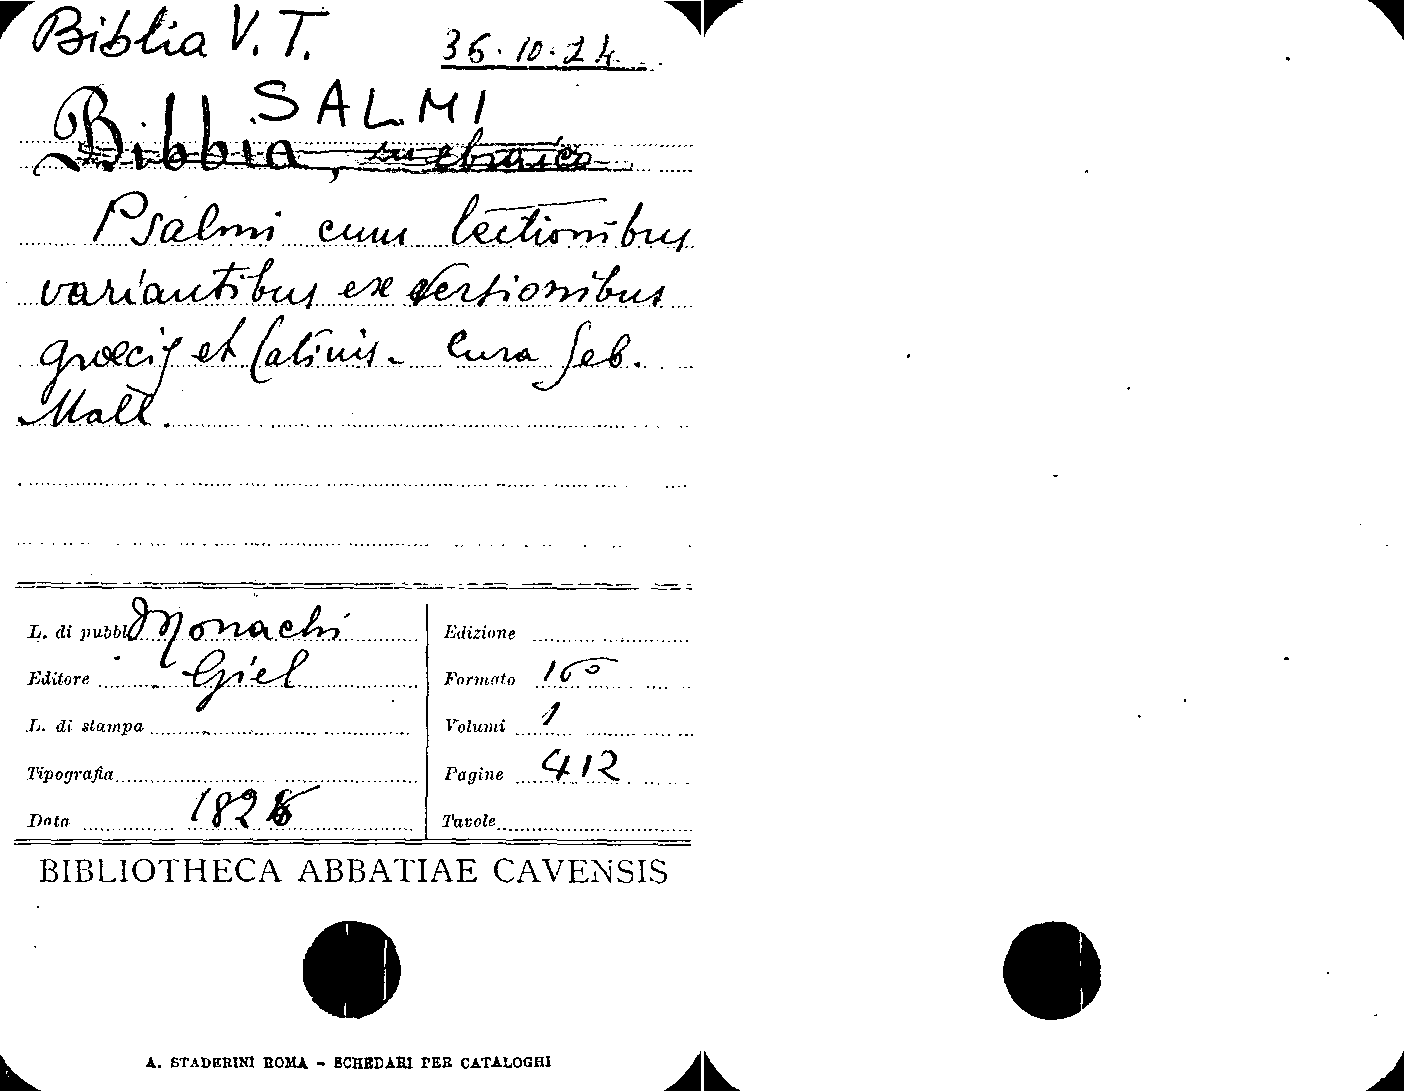 Biblia V. T. 36.10.24
SALMI
Bibbia, in ebraico
Psalmi cum lectionibus
variantibus ex versionibus
graecis et latinis. Cura Seb.
Mall.
L. di pubbl. Monachi
Editore Giel
L. di stampa
Tipografia
Data 182
Edizione
Formato 16°
Volumi 1
Pagine 412
Tavole
BIBLIOTHECA ABBATIAE CAVENSIS
A. STADERINI ROMA - SCHEDARI PER CATALOGHI